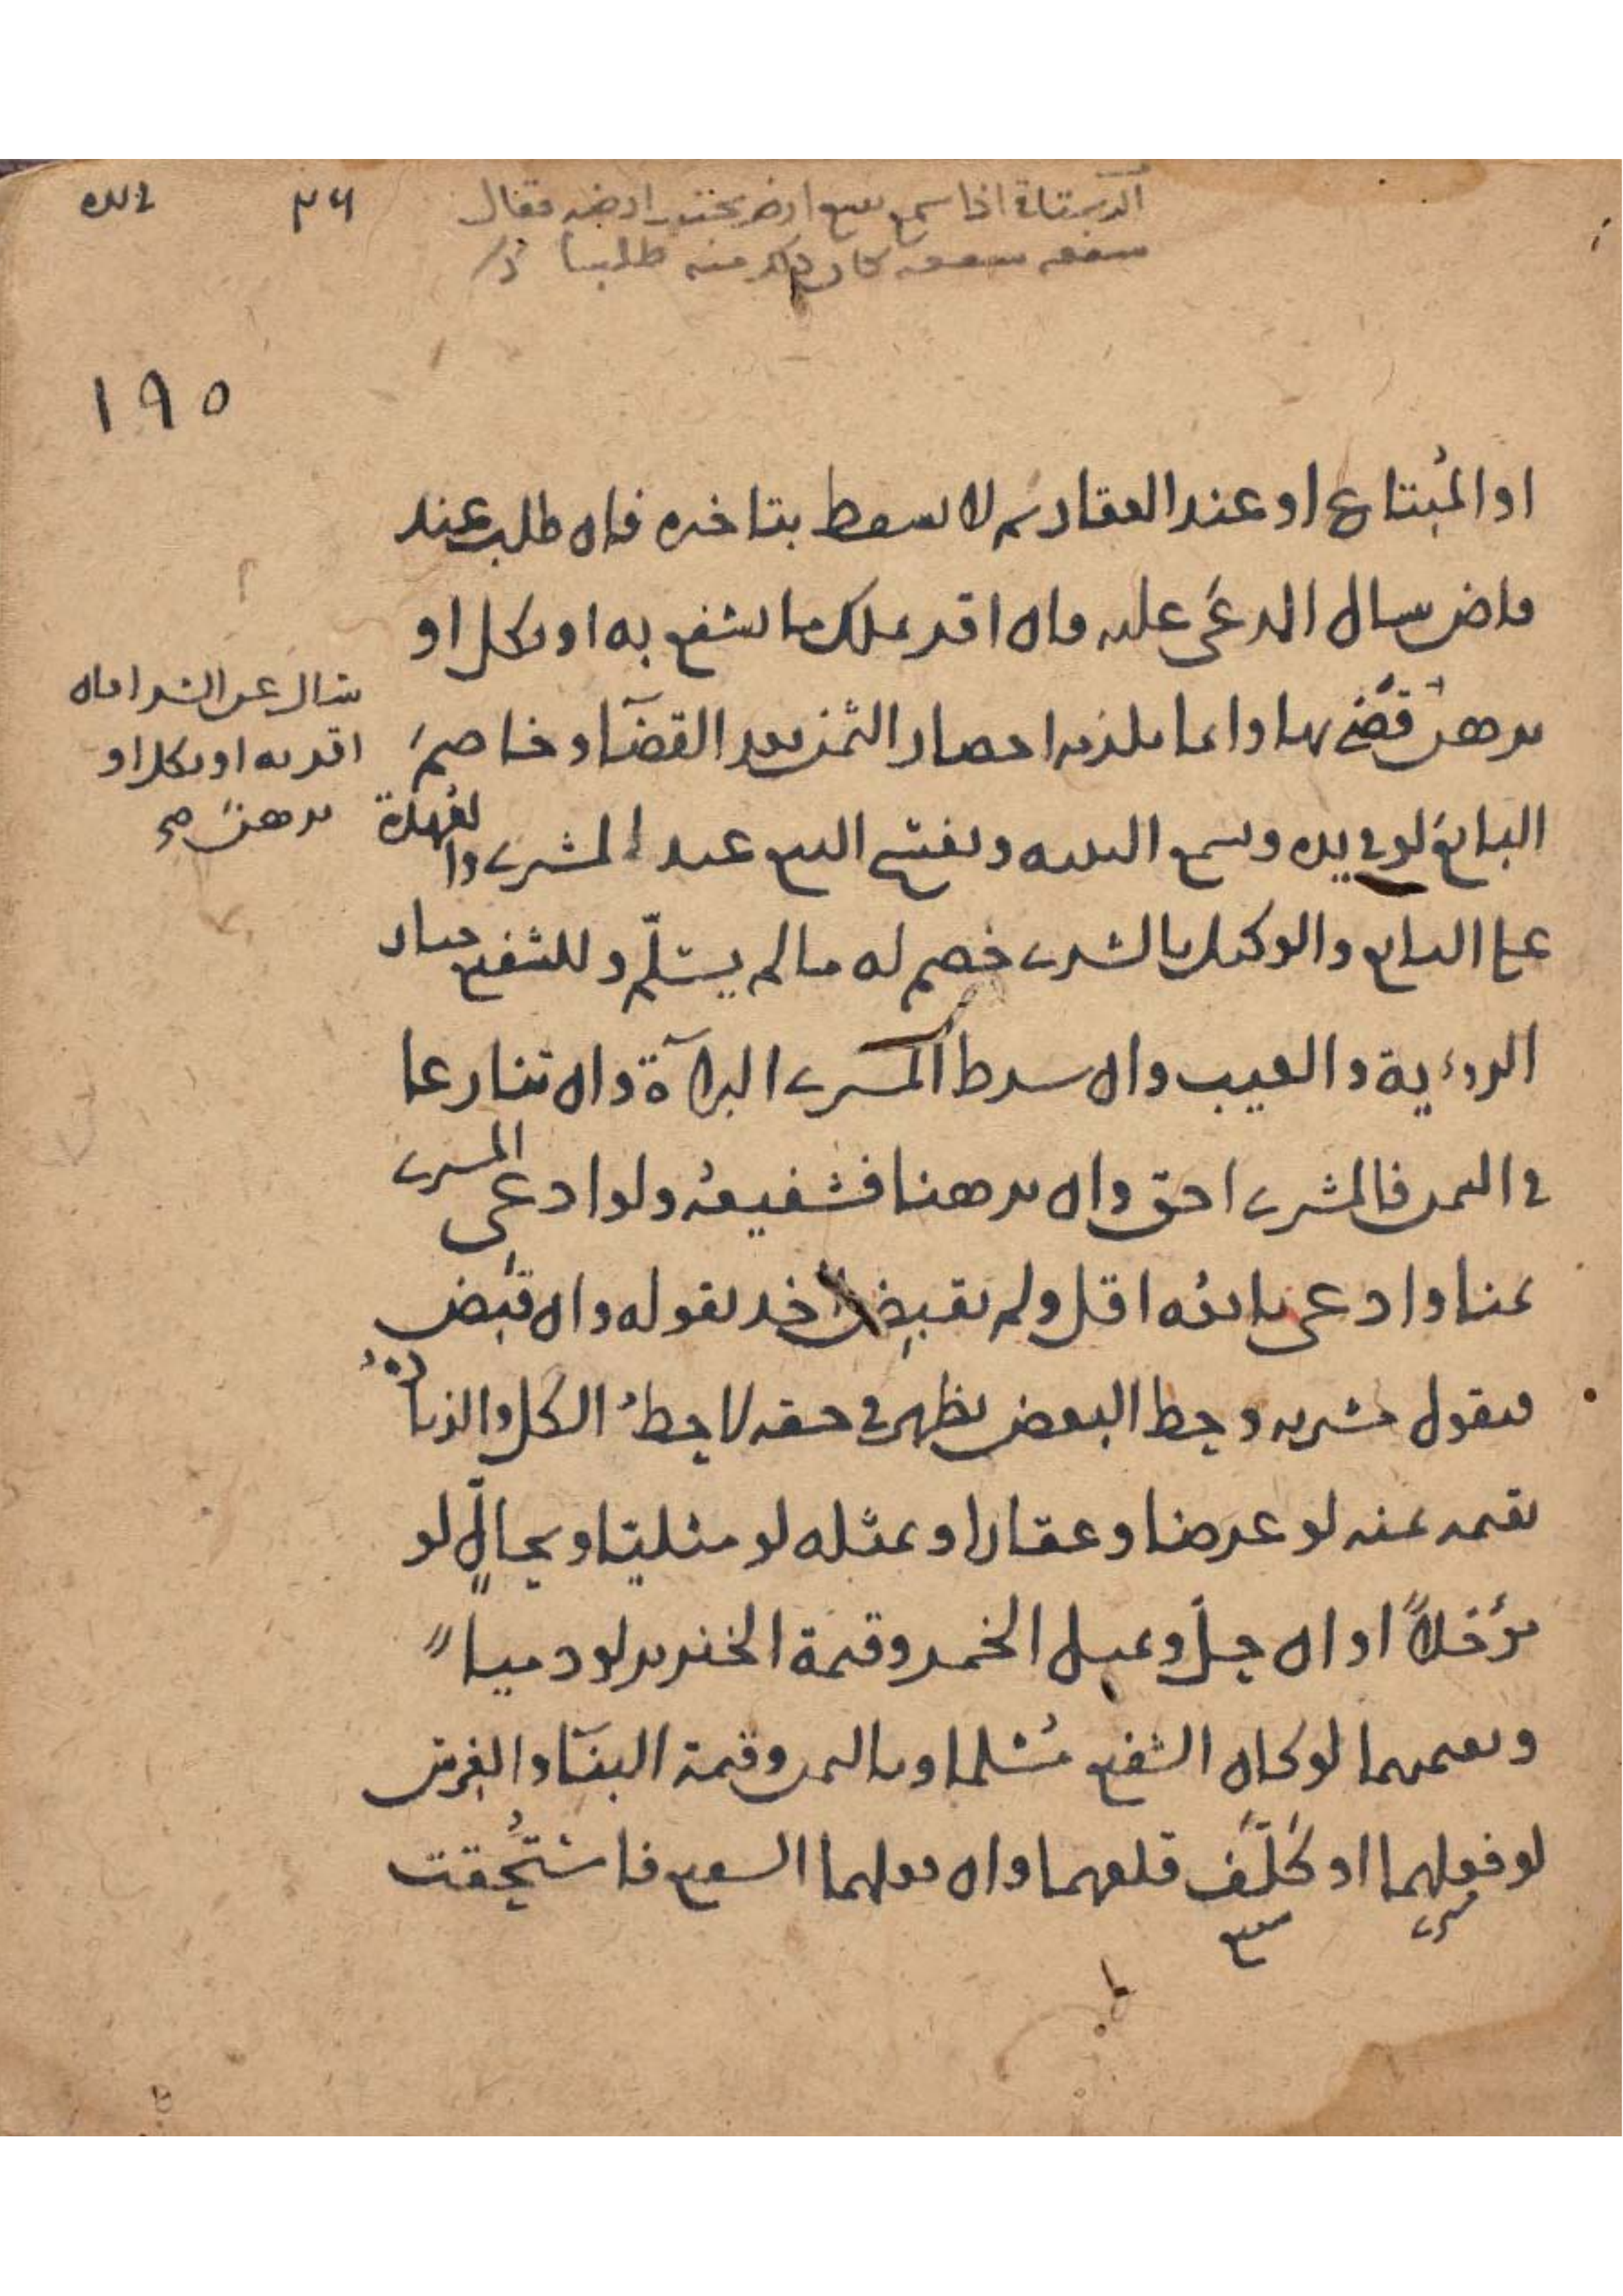 في يده
٣٦
الرستاق اذا سمع ببيع ارض بجنب ارضه فقال
شفعه شفعه كان ذلك منه طلبا
١٩٥
او المُبتاع او عند العقار ثم لا تسقط بتاخيره فان طلب عند
قاض سال المدعى عليه فان اقر بملك ما يشفع به او نكل او
برهن قضى بها وانما يلزمه احضار الثمن بعد القضآ وخاصم
البائع لو في يده وسمع البينه ويفسخ البيع عند المشتري والعهدة
على البائع والوكيل بالشرى خصم له ما لم يسلّم وللشفيع خيار
الروءية والعيب وان شرط المشتري البرآة وان تنازعا
في الثمن فالمشتري احق وان برهنا فشفيعه ولو ادعى المشتري
ثمنا وادعى بائعه اقل ولم يقبض اخذ بقوله وان قبض
فبقول مشتريه وحط البعض يظهر في حقه لا حط الكل والزيادة
بقيمة ثمنه لو عرضا وعقارا وبمثله لو مثليّا وبحالٍّ لو
مؤجلاً او ان حل وبمثل الخمر وقيمة الخنزير لو ذميا
وبقيمتهما لو كان الشفيع مُسلما وبالثمن وقيمة البنآ والغرس
لو فعلهما او كَلّفَ قلعهما وان فعلهما الشفيع فاستُحقت
مشتري
شفيع
سال عن الشرا فان
اقر به او نكل او
برهن صح